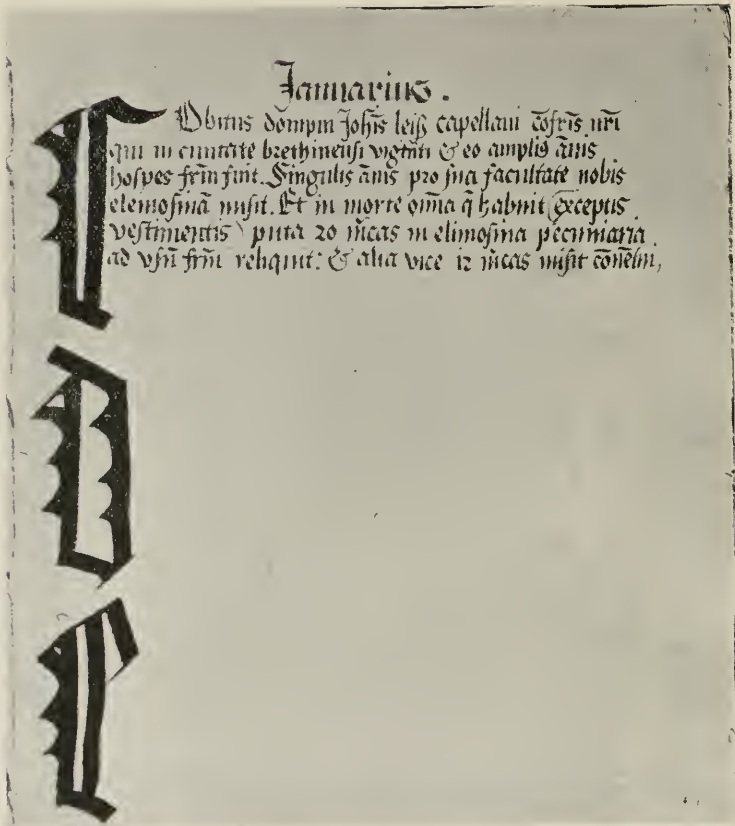 Januarius.
Obitus dompni Joh̃is leiß capellani c̄ofr̄is nr̄i
qui in ciuitate brechinensi vigĩnti & eo amplis ãnis
hospes fr̃m fuit. Singulis ãnis pro sua facultate nobis
elemosinā misit. Et in morte om̄ia q̄ habuit (exceptis
vestimentis) puta 20 m̃cas in elimosina pecuniaria
ad vsũ fr̃m reliquit: & alia vice 12 m̃cas misit
F
D
P